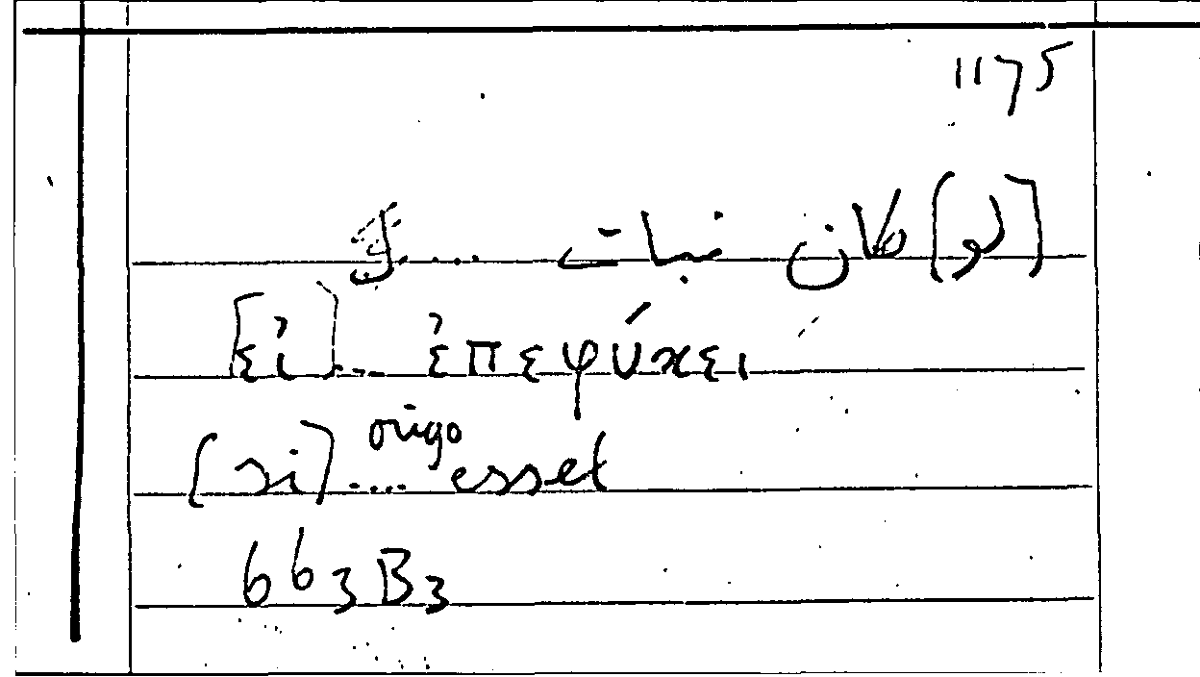 1175
[لو] كان نبات ....
[εἰ] .... ἐπεφύκει
[si] .... origo esset
663B3